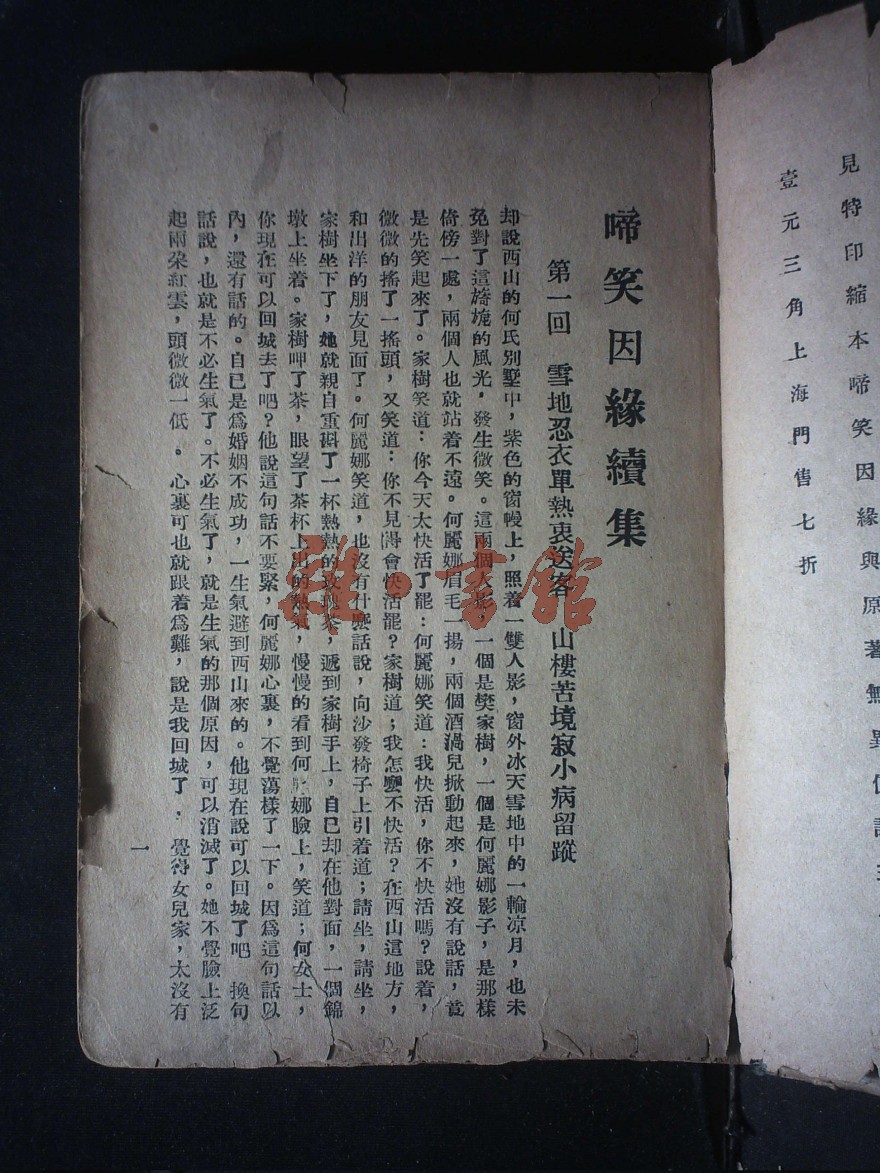 見特印縮本啼笑因緣與原著無異
壹元三角上海門售七折
啼笑因緣續集
第一回　雪地忍衣單熱衷送客　山樓苦境寂小病留蹤
却說西山的何氏別墅中，紫色的窗幔上，照着一雙人影，窗外冰天雪地中的一輪涼月，也未
免對了這旖旎的風光，發生微笑。這兩個人影，一個是樊家樹，一個是何麗娜影子，是那樣
倚傍一處，兩個人也就站着不遠。何麗娜眉毛一揚，兩個酒渦兒掀動起來，她沒有說話，竟
是先笑起來了。家樹笑道：你今天太快活了罷：何麗娜笑道：我快活，你不快活嗎？說着，
微微的搖了一搖頭，又笑道：你不見得會快活罷？家樹道；我怎麼不快活？在西山這地方，
和出洋的朋友見面了。何麗娜笑道，也沒有什麼話說，向沙發椅子上引着道；請坐，請坐，
家樹坐下了，她就親自重斟了一杯熱熱的玫瑰茶，遞到家樹手上，自己却在他對面，一個錦
墩上坐着。家樹呷了茶，眼望了茶杯上出的熱氣，慢慢的看到何麗娜臉上，笑道；何女士，
你現在可以回城去了吧？他說這句話不要緊，何麗娜心裏，不覺蕩樣了一下。因爲這句話以
內，還有話的。自己是爲婚姻不成功，一生氣避到西山來的。他現在說可以回城了吧　換句
話說，也就是不必生氣了。不必生氣了，就是生氣的那個原因，可以消滅了。她不覺臉上泛
起兩朵紅雲，頭微微一低　。心裏可也就跟着爲難，說是我回城了，覺得女兒家，太沒有
一
雜·書館